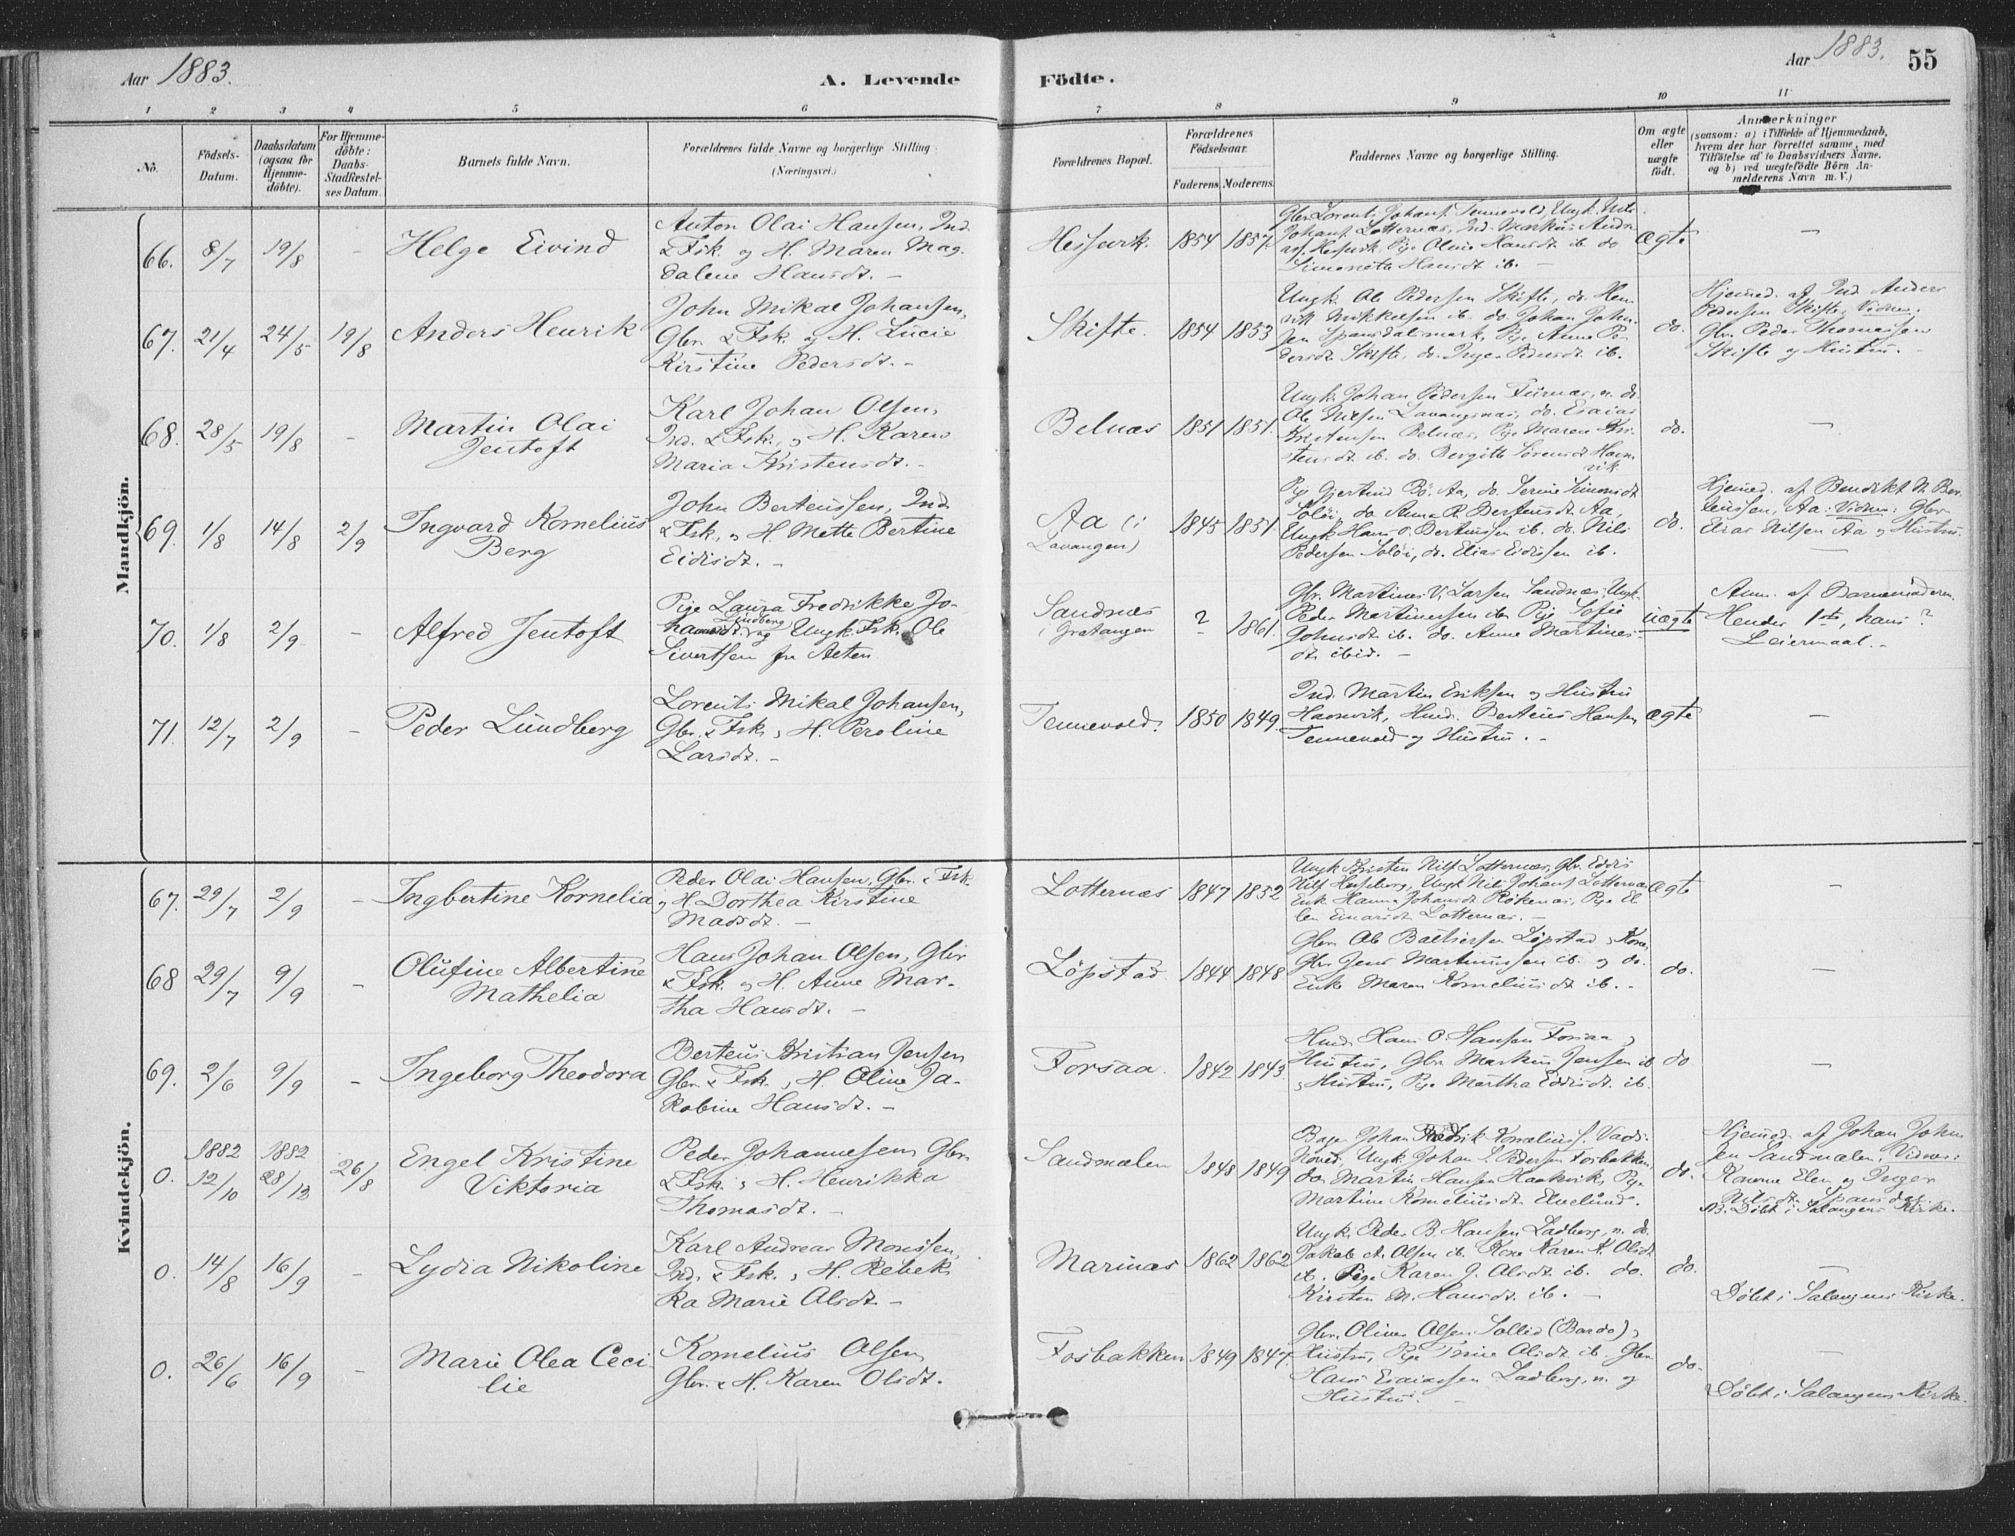 Aar 1883.
A. Levende Födte.
Aar 1883.
55
1 2 3 4 5 6 7 8 9 10 11
No.
Födsels-Datum.
Daabsdatum (ogsaa for Hjemme-döbte).
For Hjemme-döbte: Daabs-Stadfæstel-ses Datum.
Barnets fulde Navn.
Forældrenes fulde Navne og borgerlige Stilling (Næringsvei.)
Forældrenes Bopæl.
Forældrenes Födselsaar.
Faderens. Moderens.
Faddernes Navne og borgerlige Stilling.
Om ægte eller uægte födt.
Anmerkninger
(saasom: a) i Tilfælde af Hjemmedaab, hvem der har forrettet samme, med Tilföielse af to Daabsvidners Navne, og b) ved uægtefödte Börn An-melderens Navn m. V.)
Mandkjön.
66. 8/7 19/8 - Helge Eivind
Anton Olai Hansen, Ind.
& Fsk. og H. Maren Mag-
dalene Hansdt. -
1854 1857
Gbr. Lorents Johans. Tennevold, Ungk. Nils
Johans. Lotternæs, Ind. Markus Andre
Simonette Hansdt. ib. -
ægte
-
67. 21/4 24/5 19/8 Anders Henrik
John Mikal Johansen,
Gbr. & Fsk. og H. Lucie
Kirstine Pedersdt. -
Skifte. 1854 1853
Ungk. Ole Pedersen Skifte, do. Hen-
rik Mikkelsen ib. do. Johan John-
sen Spansdalsmark, Pige Anne Pe-
dersdt. Skifte, do. Inger Pedersdt. ib.
do.
Hjemmed. af Ind. Anders
Pedersen Skifte, Vidner:
Gbr. Peder Thomassen
Skifte og Hustru. -
68. 28/5 19/8 - Martin Olai
Jentoft
Karl Johan Olsen,
Ind. & Fsk., og H. Karen
Maria Kristensdt. -
Belnæs 1851 1851.
Ungk. Johan Pedersen Furnæs, n. d.
Ole Nilsen Lavangsnæs, do. Esaias
Kristensen Belnæs, Pige Maren Kri-
stensdt. ib. do. Bergitte Sörensdt. Ham-
vik
do.
-
69. 1/8 14/8 2/9 Ingvard Kornelius
Berg
John Berteussen, Ind.
& Fsk., og H. Mette Bertine
Eidisdt. -
Aa (i
Lavangen)
1845 1851
Pige Gjertrud Bö. Aa, do. Serine Simonsdt.
Solöi, do. Anna R. Berteusdt. Aa,
Ungk. Hans O. Berteussen ib. do. Nils
Pedersen Solöi, do. Elias Eidissen ib.
do.
Hjemmed. af Bendikt N. Ber-
teussen, Aa: Vidner: Gbr.
Elias Nilsen Aa og Hustru.
-
70. 1/8 2/9 - Alfred Jentoft
Pige Laura Fredrikke Jo-
hansdt. Lindberg og Ungk. Fsk. Ole
Sivertsen fra Alten
Sandnæs
i Gratangen
? 1861.
Gbr. Martines V. Larsen Sandnæs, Ungk.
Peder Martinussen ib. Pige Sofie
Johnsdt. ib. do. Anne Martines-
dt. ibid. -
uægte
Anm. af Barnemoderen.
Hendes 1ste, hans ?
Leiermaal. -
71. 12/7 2/9 - Peder Lundberg
Lorents Mikal Johansen,
Gbr. & Fsk., H. Peroline
Larsdt. -
Tennevold. 1850 1849.
Ind. Martin Eriksen og Hustru
Haavvik, Husd. Berteus Hansen
Tennevold og Hustru. -
ægte
-
Kvindekjön.
67. 29/7 2/9 - Ingbertine Kornelia
Peder Olai Hansen, Gbr. & Fsk.
og H. Dorthea Kirstine
Madsdt. -
Lotternæs 1847 1852
Ungk. Kristen Nils. Lotternæs, Gbr. Eddis
Nils. Hesjeberg, Ungk. Nils Johans. Lotternæs
Enke Hanna Johansdt. Rökenæs, Pige El-
len Einarsdt. Lotternæs. -
ægte
-
68 29/7 9/9 - Olufine Albertine
Mathelia
Hans Johan Olsen, Gbr.
& Fsk. og H. Anne Mar-
tha Hansdt. -
Löpstad 1844 1848
Gbr. Ole Baltsersen Löpstad & Kone,
Gbr. Jens Martinussen ib. og do.
Enke Maren Korneliusdt. ib. -
do.
-
69. 2/6 9/9 - Ingeborg Theodora
Berteus Kristian Jensen
Gbr. & Fsk., H. Oline Ja-
kobine Hansdt. -
Forsaa. 1842 1843.
Husd. Hans O. Hansen Forsaa &
Hustru, Gbr. Markus Jensen ib.
& Hustru, Pige Martha Eddisdt. ib.
do
-
0. 1882 12/10 1882 28/12 26/8 Engel Kristine
Viktoria
Peder Johannesen, Gbr.
& Fsk. & H. Henrikka
Thomasdt. -
Sandmælen 1848 1849
Bager Johan Fredrik Kornelius. Vads-
hoved, Ungk. Johan L. Pedersen Fosbakken,
do. Martin Hansen Haakvik, Pige
Martine Korneliusdt. Elvelund.
do.
Hjemmed. af Johan John-
sen Sandmælen, Vidner:
Konerne Elen og Inger
Nilsdt. Spansdal.
NB. Döbt i Salangens Kirke.
0. 14/8 16/9 - Lydia Nikoline
Karl Andreas Monssen,
Ind. & Fsk., H. Rebek-
ka Marie Olsdt. -
Marinæs 1862 1862
Ungk. Peder B. Hansen Ladberg, n. do.
Jakob A. Olsen ib. Kone Karen K. Olsdt.
ib. Pige Karen J. Olsdt. ib. do.
Kirsten M. Hansdt. ib. -
do.
-
Döbt i Salangens Kirke.
0. 26/6 16/9 - Marie Olea Ceci-
lie
Kornelius Olsen,
Gbr. & H. Karen Olsdt.
Fosbakken 1849 1847
Gbr. Oliver Olsen Sollid (Bardo) &
Hustru, Pige Trine Olsdt. ib. Gbr.
Hans Esaiassen Ladberg, n. og
Hustru. -
do.
-
Döbt i Salangens Kirke.